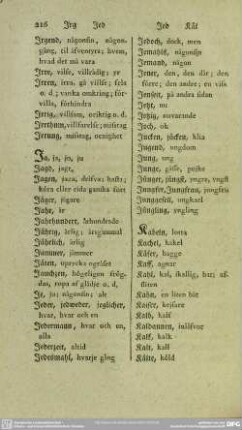 216 Irg Jed
Irgend, någonsin, någon-
gång, til äfventyrs; hvem,
hvad det må vara
Irre, vilse, villrådig; yr
Irren, irra, gå vilse; fela
o. d.; vanka omkring; för-
villa, förhindra
Irrig, villsam, oriktig o. d.
Irrthum, villfarelse; misstag
Irrung, misstag, oenighet
Ja, ja, ju, ju
Jagd, jagt
Jagen, jaga, drifva; hasta;
köra eller rida ganska fort
Jäger, jägare
Jahr, år
Jahrhundert, århundrade
Jährig, årlig;
Jährlich, årlig
Jammer, jämmer
Jäten, uprycka ogräset
Jauchzen, högeligen fröj-
das, ropa af glädje o. d.
Je, ju; någonsin; alt
Jeder, jedweder, jeglicher,
hvar, hvar och en
Jedermann, hvar och en,
alla
Jederzeit, altid
Jedesmahl, hvarje gång
Jed Kät
Jedoch, dock, men
Jemahls, någonsin
Jemand, någon
Jener, den, den där; den
förre; den andre; en viss
Jenseit, på andra sidan
Jetzt, nu
Jetzig, nuvarande
Joch, ok
Jucken, klia
Jugend, ungdom
Jung, ung
Junge, gosse, pojke
Jünger, yngre,
Jungfer, Jungfrau, jungfru
Junggesell, ungkarl
Jüngling, yngling
Kabeln, lotta
Kachel, kakel
Käfer, bagge
Kaff, agnar
Kahl, kal, skallig, bar; af-
sliten
Kahn, en liten båt
Kaiser, kejsare
Kalb, kalf
Kaldaunen, inälfvor
Kalk, kalk
Kalt, kall
Kälte, köld